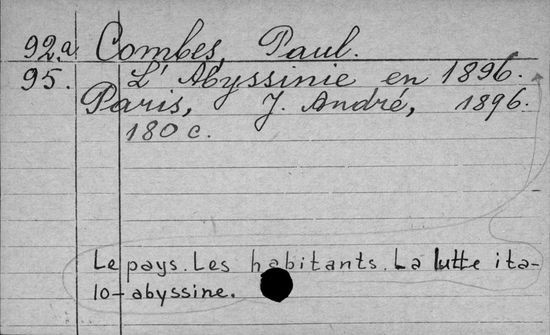 92a Combes, Paul.
95. L'Abyssinie en 1896.
Paris, J. André, 1896.
180 c.
Le pays. Les habitants. La lutte ita-
lo-abyssine.